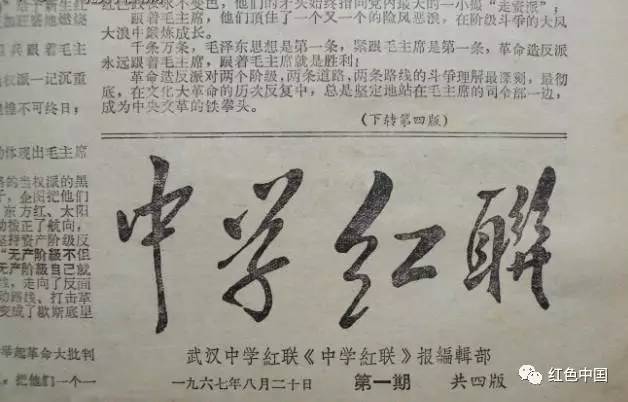 色江山永不变色，他们的矛头始终指向党内最大的一小撮“走资派”；
跟着毛主席，他们顶住了一个又一个的险风恶浪，在阶级斗争的大风
大浪中锻炼成长。
千条万条，毛泽东思想是第一条，紧跟毛主席是第一条，革命造反派
永远跟着毛主席，跟着毛主席就是胜利！
革命造反派对两个阶级，两条道路，两条路线的斗争理解最深刻，最彻
底，在文化大革命的历次反复中，总是坚定地站在毛主席的司令部一边，
成为中央文革的铁拳头。
（下转第四版）
兵跟着毛主
权派一记沉重
惶不可终日；
体现出毛主席
的当权派的黑
子，企图把他们
东方红、太阳
拨正了航向，
坚持资产阶级反
“无产阶级不但
无产阶级自己就
线，走向了反面
动路线、打击革
变成了歇斯底里
举起革命大批判
，把他们一个一
中学红联
武汉中学红联《中学红联》报编辑部
一九六七年八月二十日 第一期 共四版
红色中国